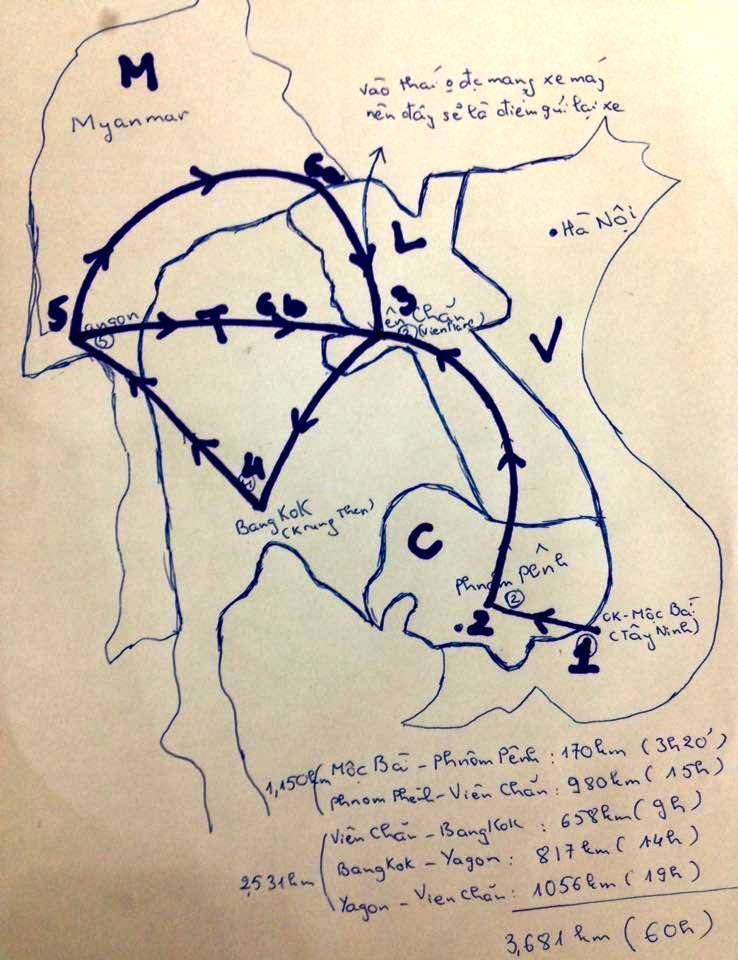 M
Myanmar
vào thái o đc mang xe máy
nên đây sẽ là điểm gửi lại xe
6a
L
Hà Nội
5
angon
5
6b
3
ên Chăn
(Vientiane)
V
4
BangKoK
(Krung Thep)
C
Phnôm Pênh
2
.2
CK-Mộc Bài
(Tây Ninh)
1
1,150km
Mộc Bài - Phnôm Pênh : 170km (3h20')
Phnom Pheih - Viên Chăn : 980km (15h)
2531km
Viên Chăn - BangKok : 658km (9h)
Bangkok - Yagon : 817km (14h)
Yagon - Vien Chăn : 1056km (19h)
3,681km (60h)